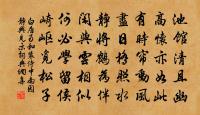 池館清且幽
高懷亦如此
有時簾動風
盡日橋照水
静將鶴為伴
閑與雲相似
何必學留侯
崎嶇覓松子
白居易和裴侍中南园
静興見示